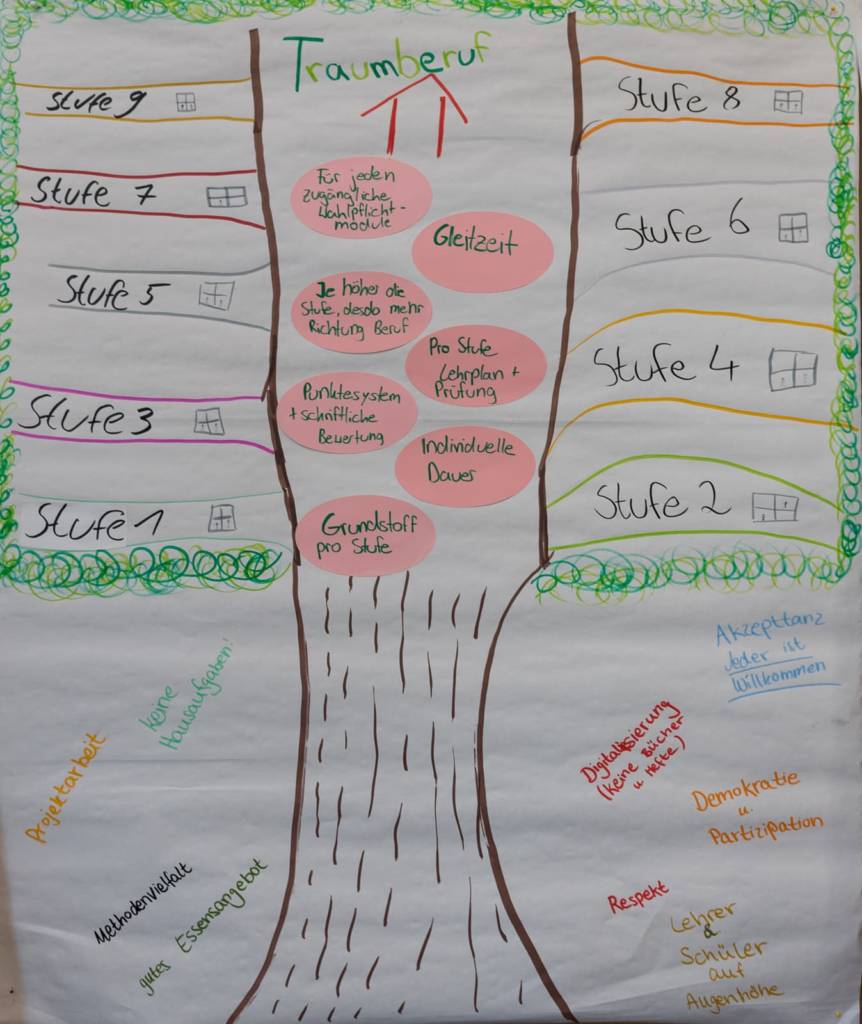 Traumberuf
Stufe 9
Stufe 8
Für jeden
zugängliche
Wahlpflicht-
module
Stufe 7
Gleitzeit
Stufe 6
Je höher die
Stufe, desdo mehr
Richtung Beruf
Stufe 5
Pro Stufe
Lehrplan +
Prüfung
Stufe 4
Punktesystem
+ schriftliche
Bewertung
Stufe 3
Individuelle
Dauer
Stufe 2
Grundstoff
pro Stufe
Stufe 1
keine
Hausaufgaben!
Projektarbeit
Methodenvielfalt
gutes Essensangebot
Akzepttanz
Jeder ist
Willkommen
Digitalisierung
(keine Bücher
u Hefte)
Demokratie
u.
Partizipation
Respekt
Lehrer
&
Schüler
auf
Augenhöhe